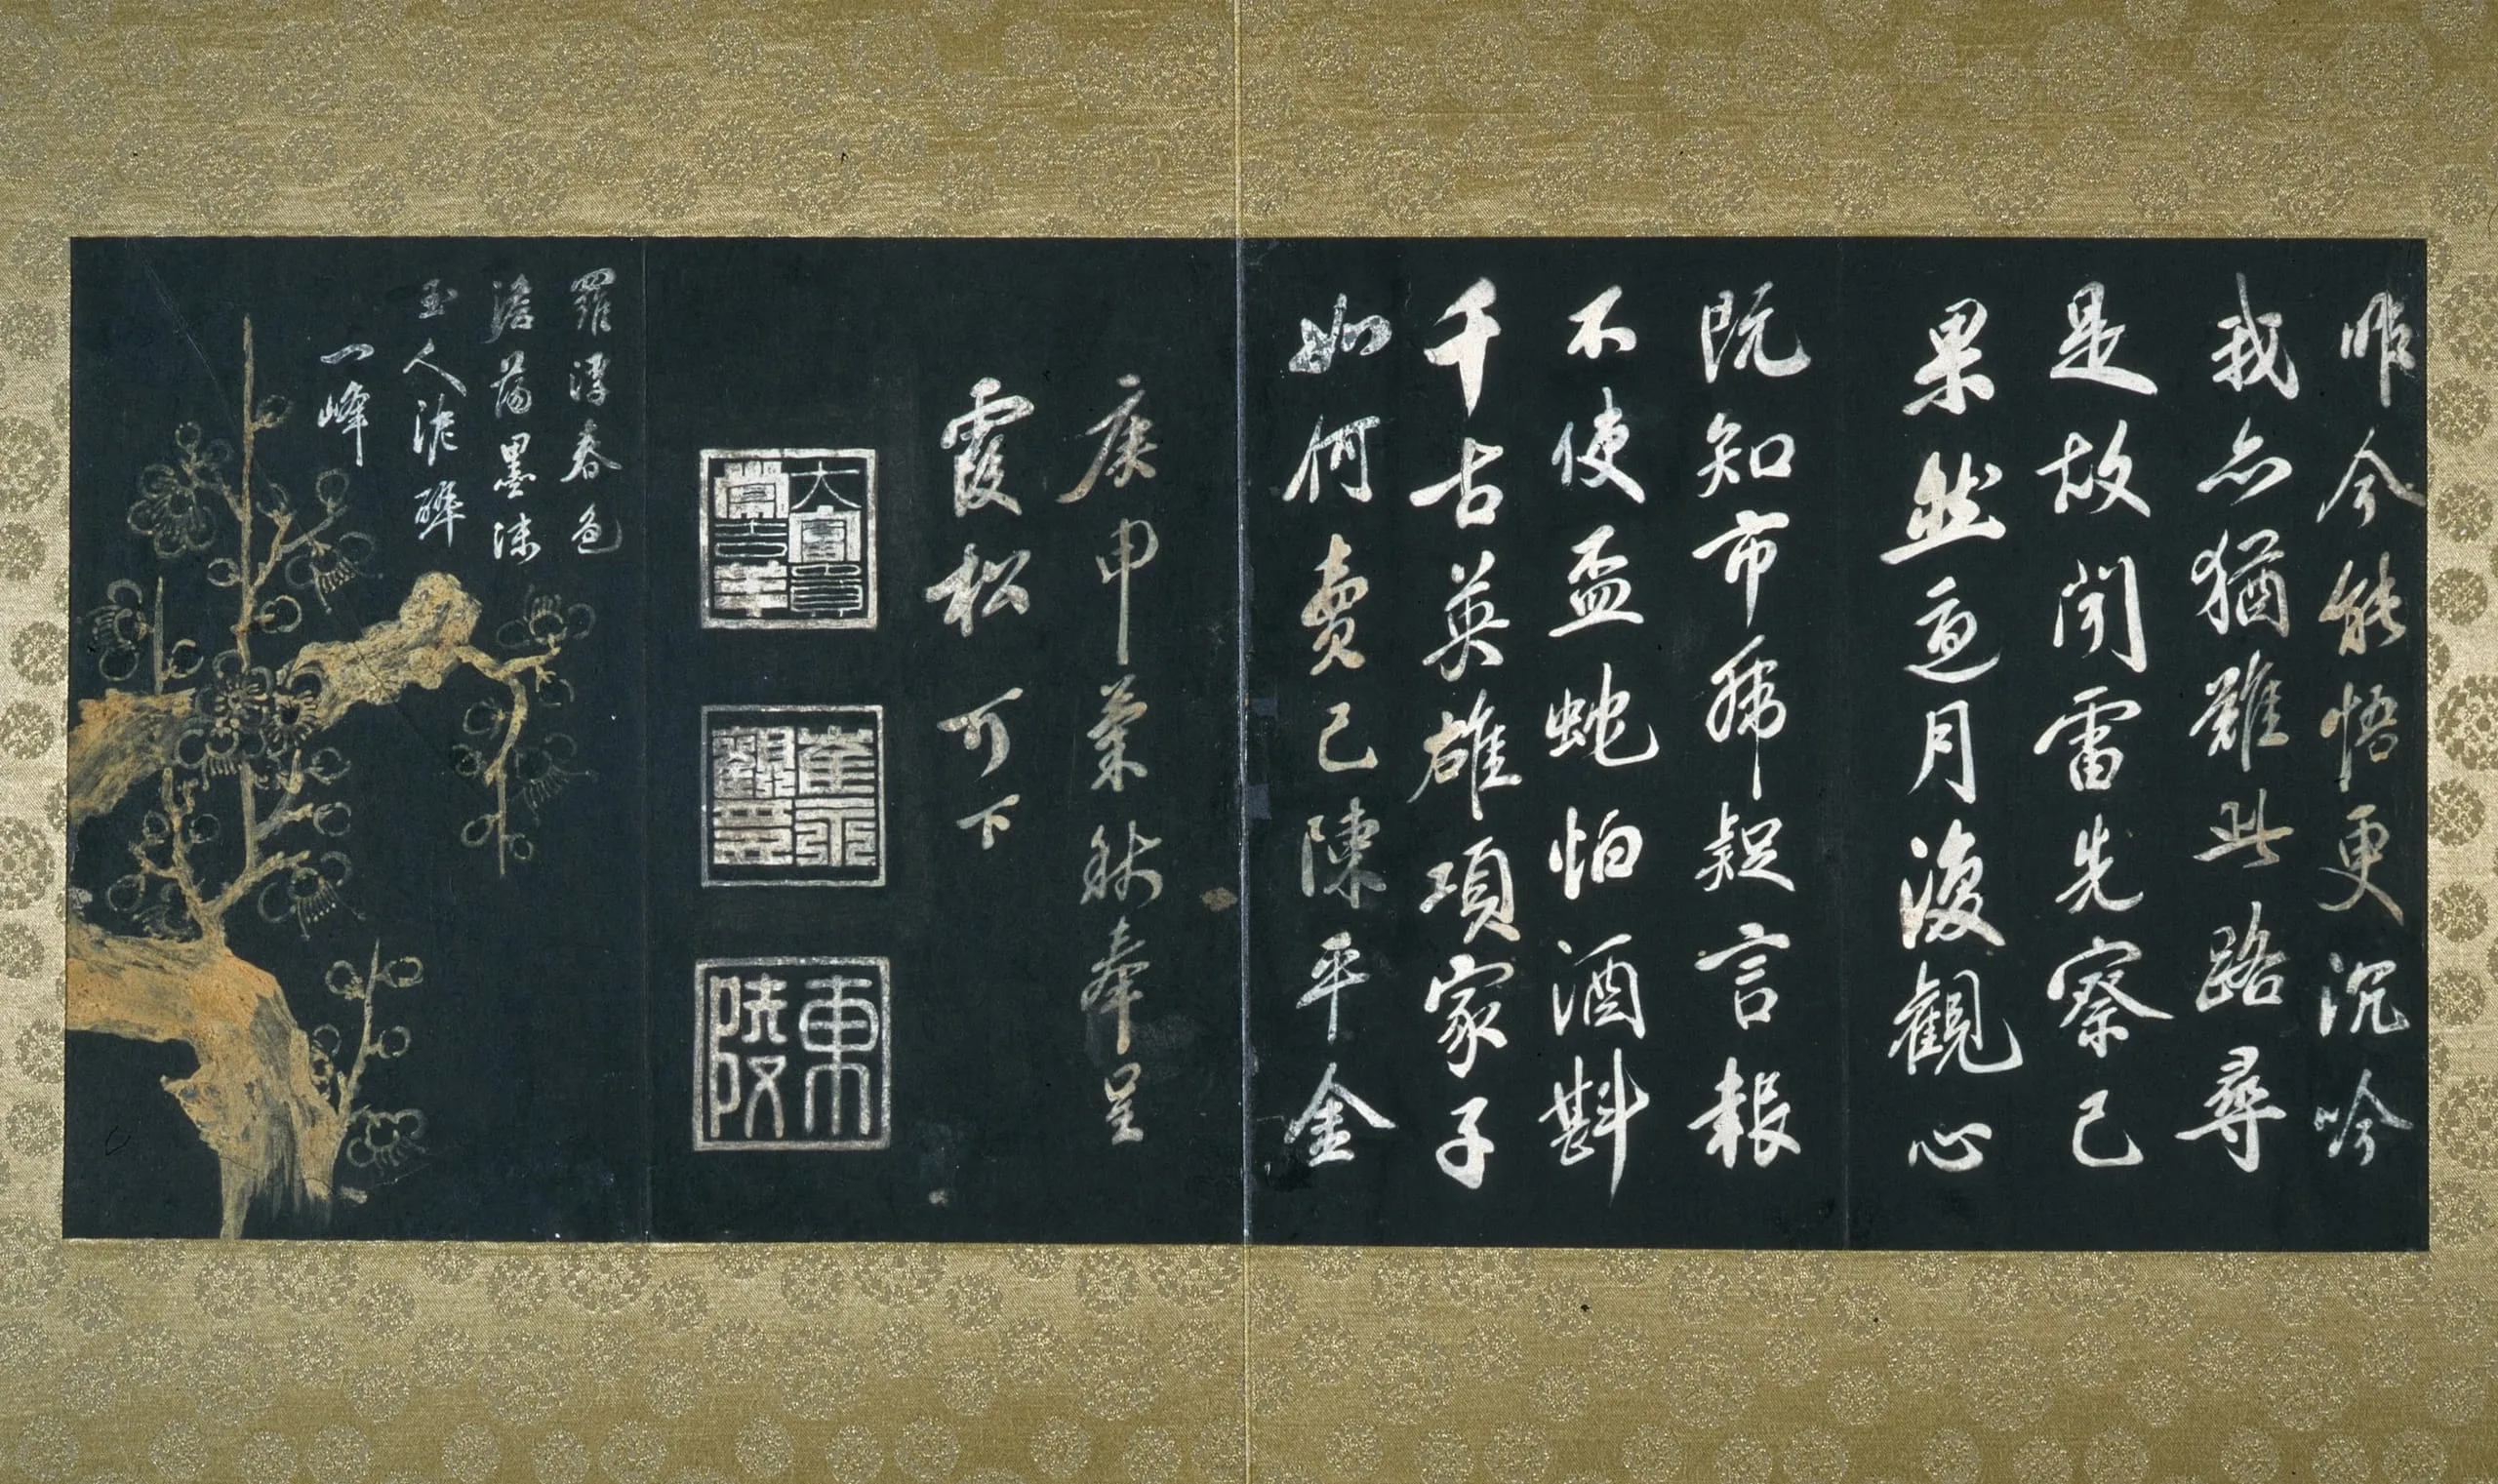 昨今能悟更沉吟
我亦猶難此路尋
是故聞雷先察己
果然月復觀心
既知市虎疑言報
不使盃蛇怕酒斟
千古英雄項家子
如何賣己陳平金
庚申菊秋奉呈
霞松可下
東陵
羅浮春色
澹蕩墨沫
玉人泥醉
一峰